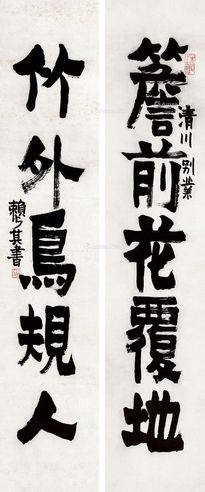 簷前花覆地
清川別業
竹外鳥規人
賴少其書